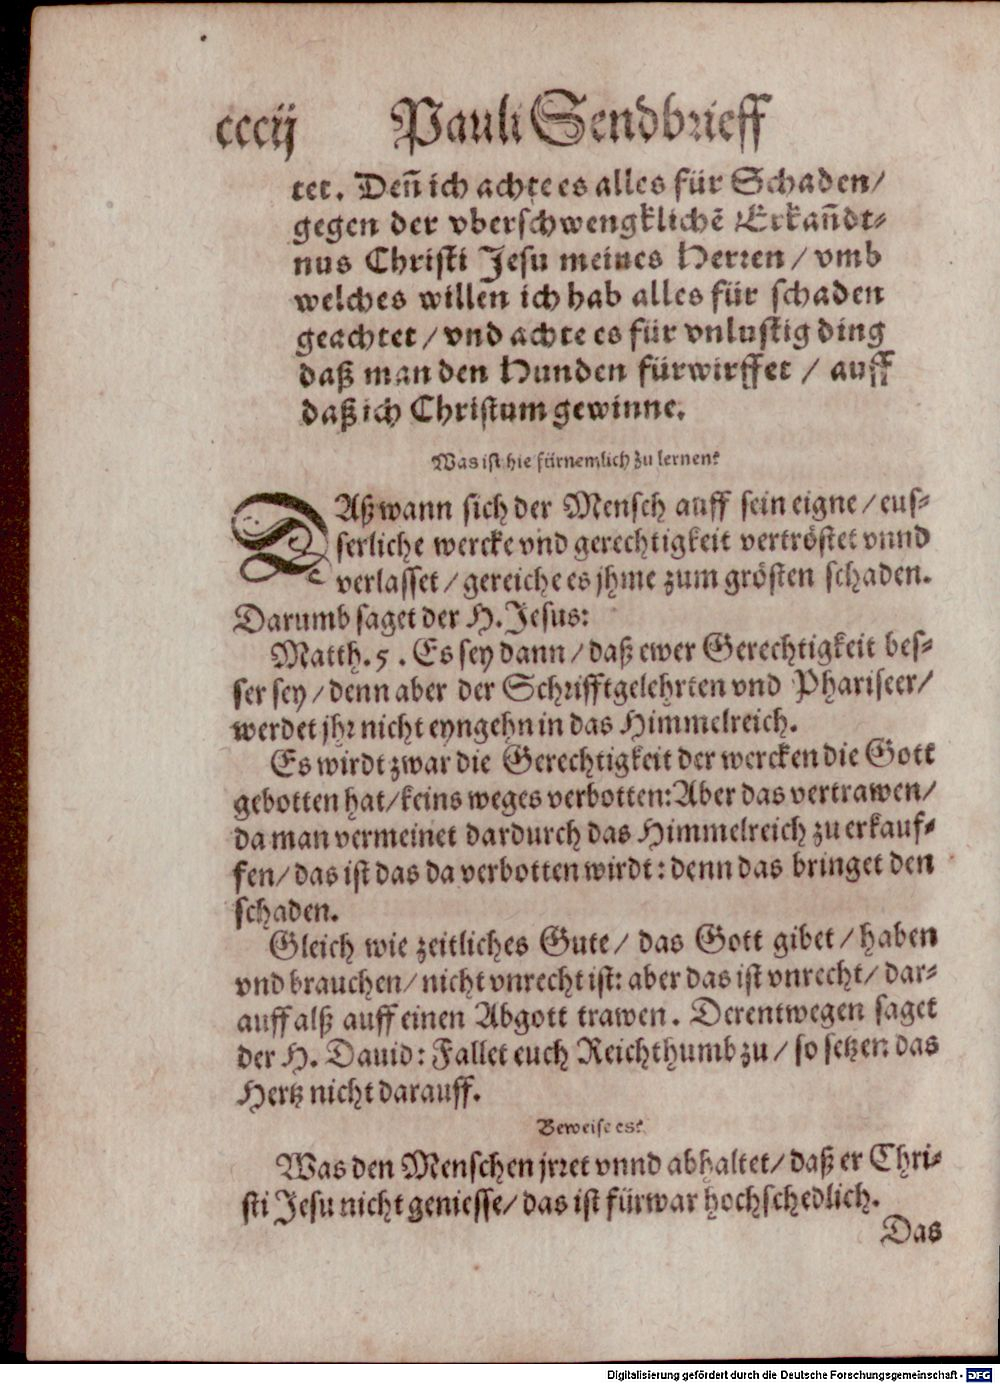 cccij Pauli Sendbrieff
tet. Deñ ich achte es alles für Schaden/
gegen der vberschwengklichẽ Erkañdt-
nus Christi Jesu meines Herren/ vmb
welches willen ich hab alles für schaden
geachtet/ vnd achte es für vnlustig ding
daß man den Hunden fürwirffet/ auff
daß ich Christum gewinne.
Was ist hie fürnemlich zu lernen?
DAß wann sich der Mensch auff sein eigne/ eus-
serliche wercke vnd gerechtigkeit vertröstet vnnd
verlasset/ gereiche es jhme zum grösten schaden.
Darumb saget der H. Jesus:
Matth. 5. Es sey dann/ daß ewer Gerechtigkeit bes-
ser sey/ denn aber der Schrifftgelehrten vnd Phariseer/
werdet jhr nicht eyngehn in das Himmelreich.
Es wirdt zwar die Gerechtigkeit der wercken die Gott
gebotten hat/ keins weges verbotten: Aber das vertrawen/
da man vermeinet dardurch das Himmelreich zu erkauf-
fen/ das ist das da verbotten wirdt: denn das bringet den
schaden.
Gleich wie zeitliches Gute/ das Gott gibet/ haben
vnd brauchen/ nicht vnrecht ist: aber das ist vnrecht/ dar-
auff alß auff einen Abgott trawen. Derentwegen saget
der H. Dauid: Fallet euch Reichthumb zu/ so setzen das
Hertz nicht darauff.
Beweise es?
Was den Menschen jrret vnnd abhaltet/ daß er Chri-
sti Jesu nicht geniesse/ das ist fürwar hochschedlich.
Das
Digitalisierung gefördert durch die Deutsche Forschungsgemeinschaft - DFG